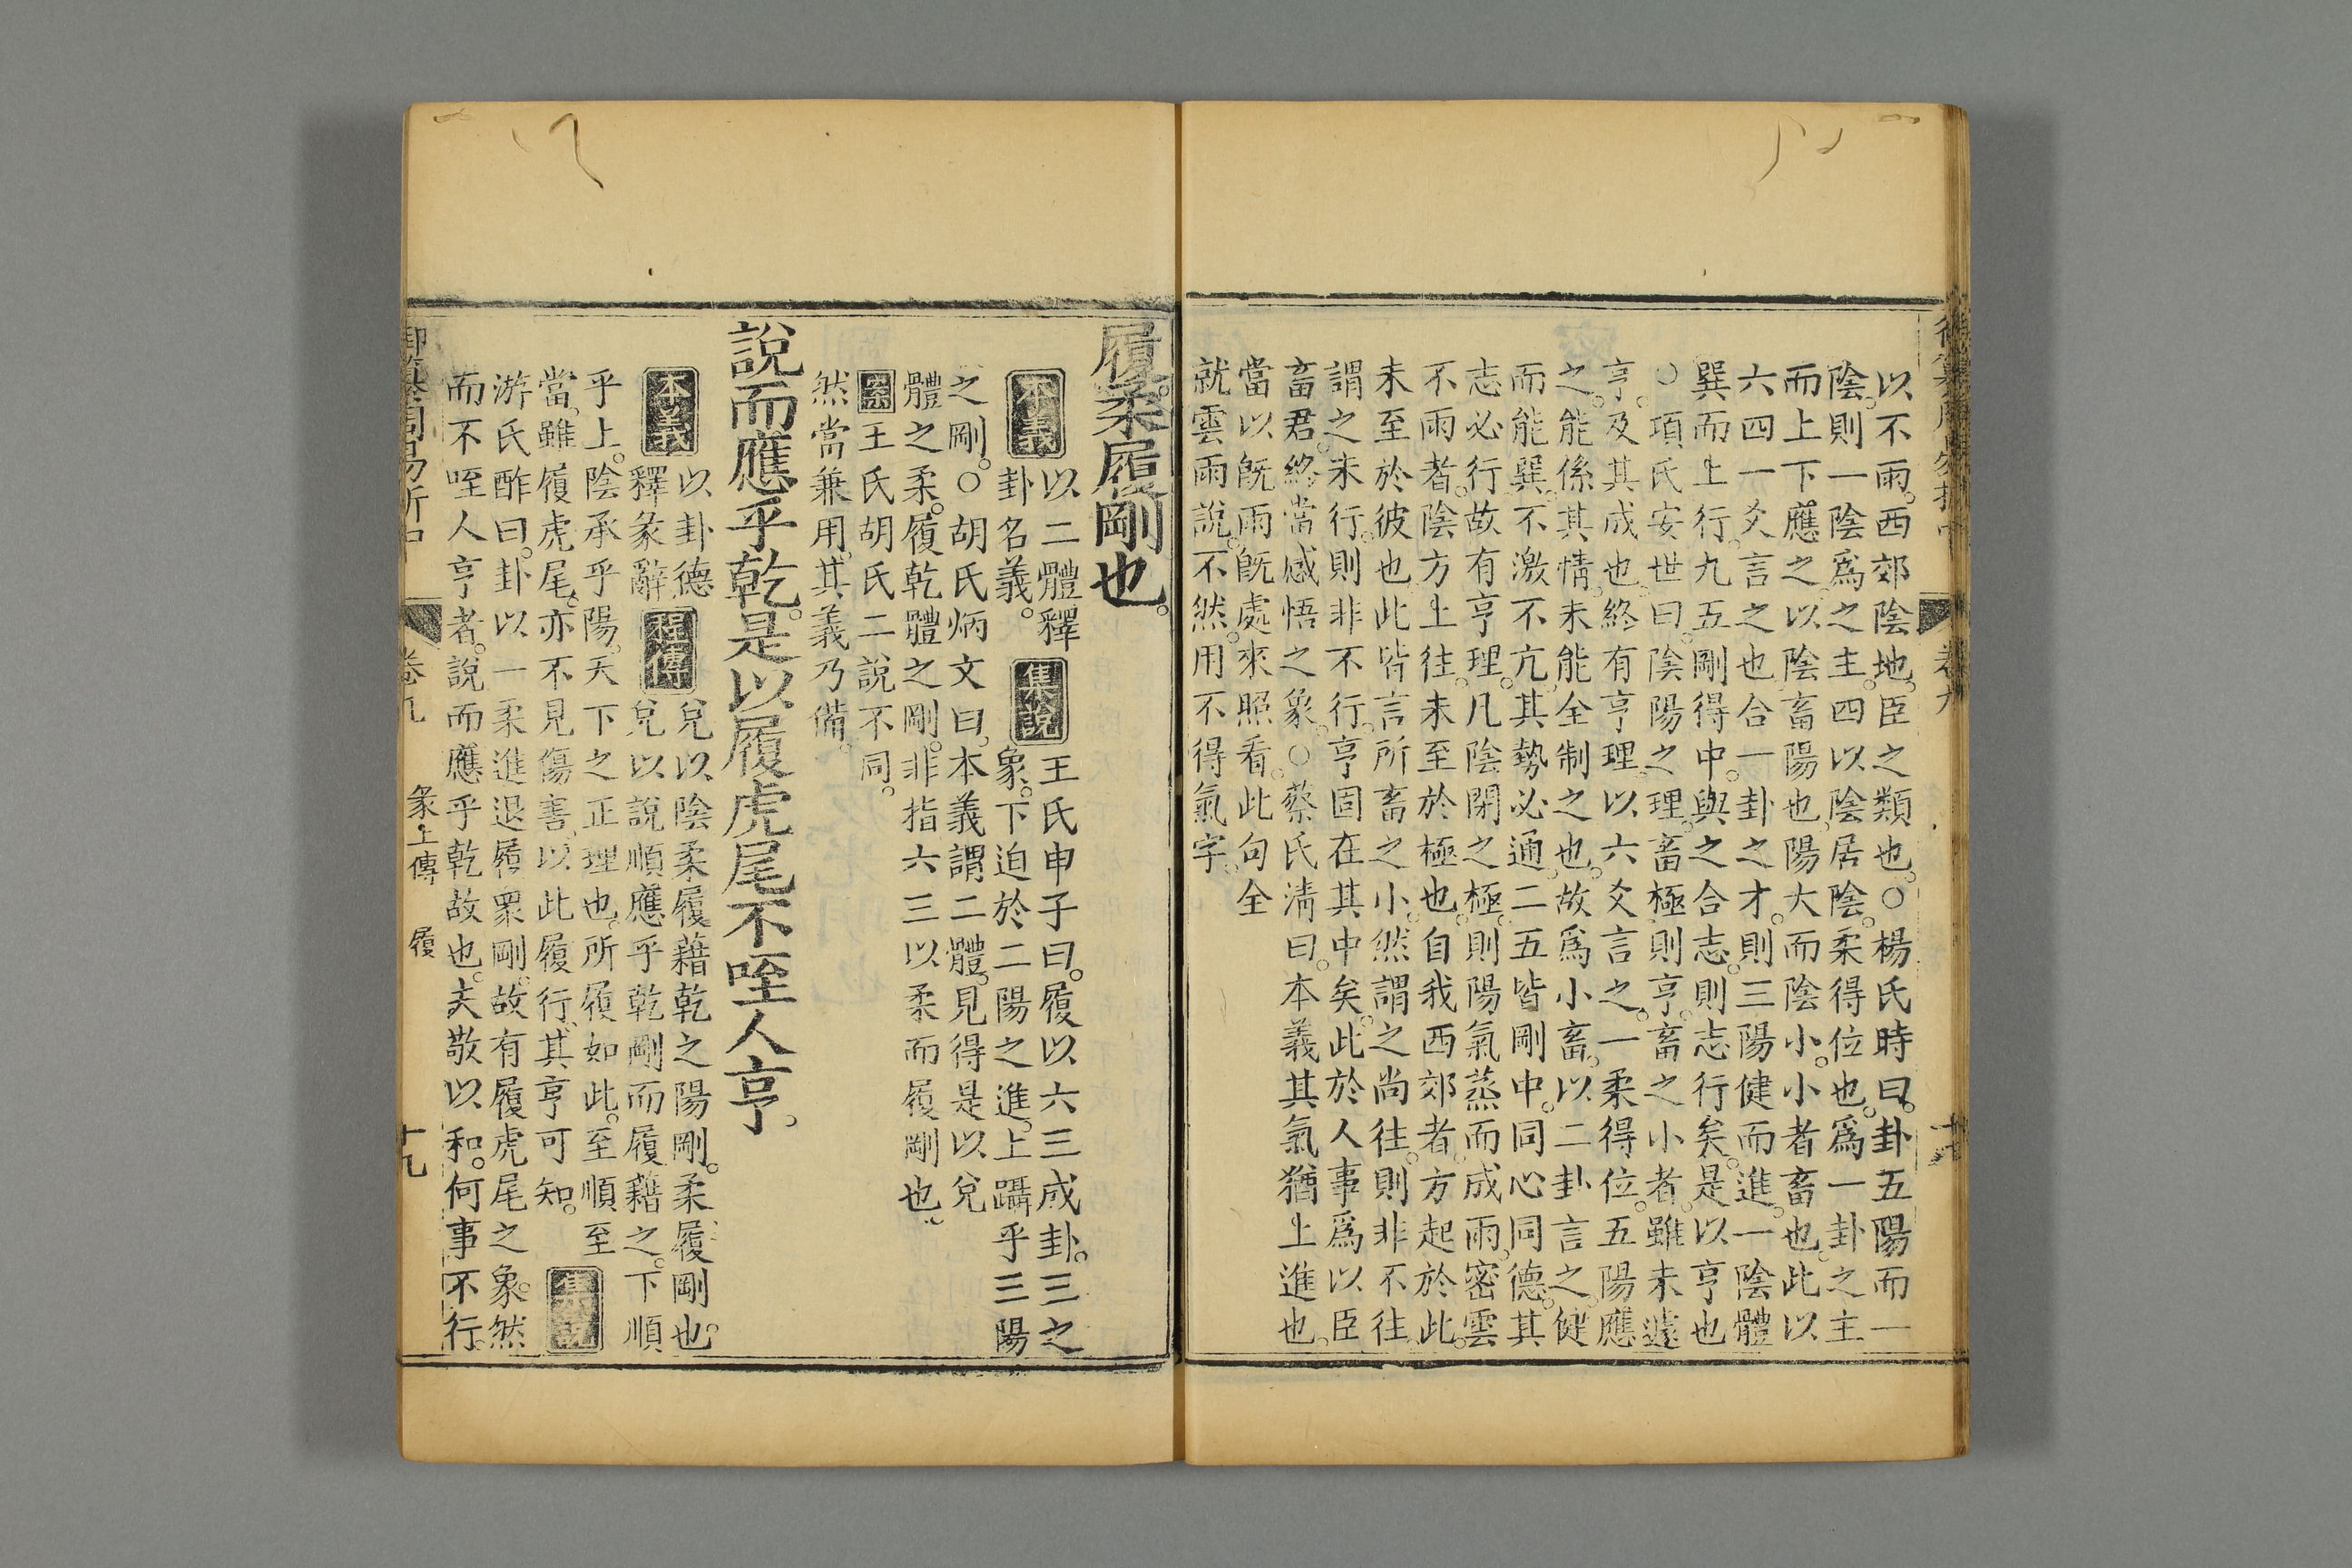 以不雨。西郊陰地。臣之類也。○楊氏時曰。卦五陽而一
陰。則一陰爲之主。四以陰居陰。柔得位也。爲一卦之主
而上下應之。以陰畜陽也。陽大而陰小。小者畜也。此以
六四一爻言之也。合一卦之才。則三陽健而進。一陰體
巽而上行。九五剛得中。與之合志。則志行矣。是以亨也
○項氏安世曰。陰陽之理。畜極則亨。畜之小者。雖未遽
亨。及其成也。終有亨理。以六爻言之。一柔得位。五陽應
之。能係其情。未能全制之也。故爲小畜。以二卦言之。健
而能巽。不激不亢。其勢必通。二五皆剛中。同心同德。其
志必行。故有亨理。凡陰閉之極。則陽氣蒸而成雨。密雲
不雨者。陰方上往。未至於極也。自我西郊者。方起於此。
未至於彼也。此皆言所畜之小。然謂之尚往。則非不往。
謂之未行。則非不行。亨固在其中矣。此於人事爲以臣
畜君。終當感悟之象。○蔡氏淸曰。本義其氣猶上進也。
當以旣雨旣處來照看。此句全
就雲雨說。不然。用不得氣字。
履。柔履剛也。
本義 以二體釋
卦名義。
集說 王氏申子曰。履以六三成卦。三之
象。下迫於二陽之進。上躡乎三陽
之剛。○胡氏炳文曰。本義謂二體。見得是以兌
體之柔。履乾體之剛。非指六三以柔而履剛也。
案王氏胡氏二說不同。
然當兼用。其義乃備。
說而應乎乾。是以履虎尾不咥人亨。
本義 以卦德
釋彖辭
程傳 兌以陰柔履藉乾之陽剛。柔履剛也。
兌以說順應乎乾剛而履藉之。下順
乎上。陰承乎陽。天下之正理也。所履如此。至順至
當。雖履虎尾。亦不見傷害。以此履行。其亨可知。 集說
游氏酢曰。卦以一柔進退履衆剛。故有履虎尾之象。然
而不咥人亨者。說而應乎乾故也。夫敬以和。何事不行。
御纂周易折中 卷九 彖上傳 履 十九